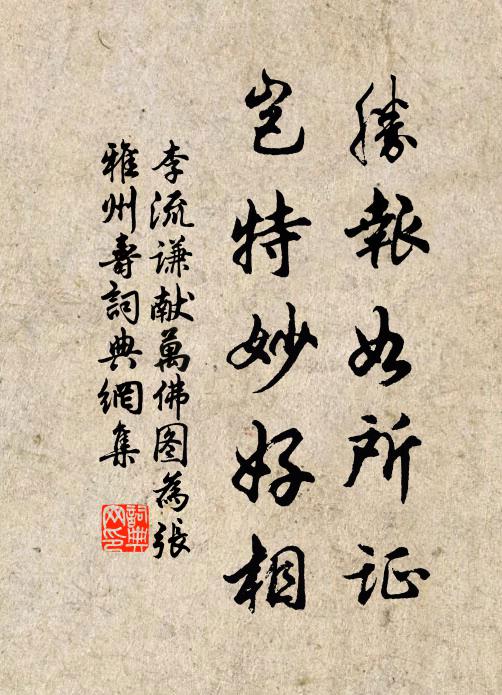 勝報如所证
豈特妙好相
李流谦献萬佛图為張
雅州壽詞典網集
詞典网印